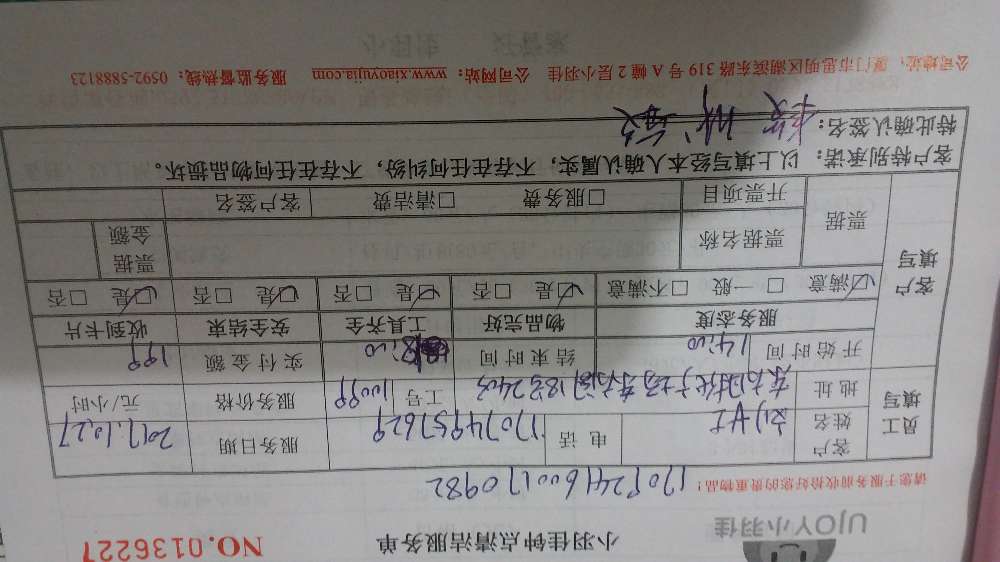 UJOY小羽佳
小羽佳钟点清洁服务单
NO.0136227
请您于服务前收拾好您的贵重物品!
员工填写
客户姓名
电话
17074957629
服务日期
2017.10.27
地址
工号
10099
服务价格
元/小时
开始时间
14:00
结束时间
18:00
实付金额
199
客户填写
服务态度
物品完好
工具齐全
安全结束
收到卡片
☑满意 □一般 □不满意
☑是 □否
☑是 □否
☑是 □否
☑是 □否
票据
票据名称
票据金额
开票项目
□服务费 □清洁费
客户签名
客户特别承诺:以上填写经本人确认属实,不存在任何纠纷,不存在任何物品损坏。
特此确认签名:
公司地址:厦门市思明区湖滨东路319号A幢2层小羽佳 公司网站:www.xiaoyujia.com 服务监督热线:0592-5888123